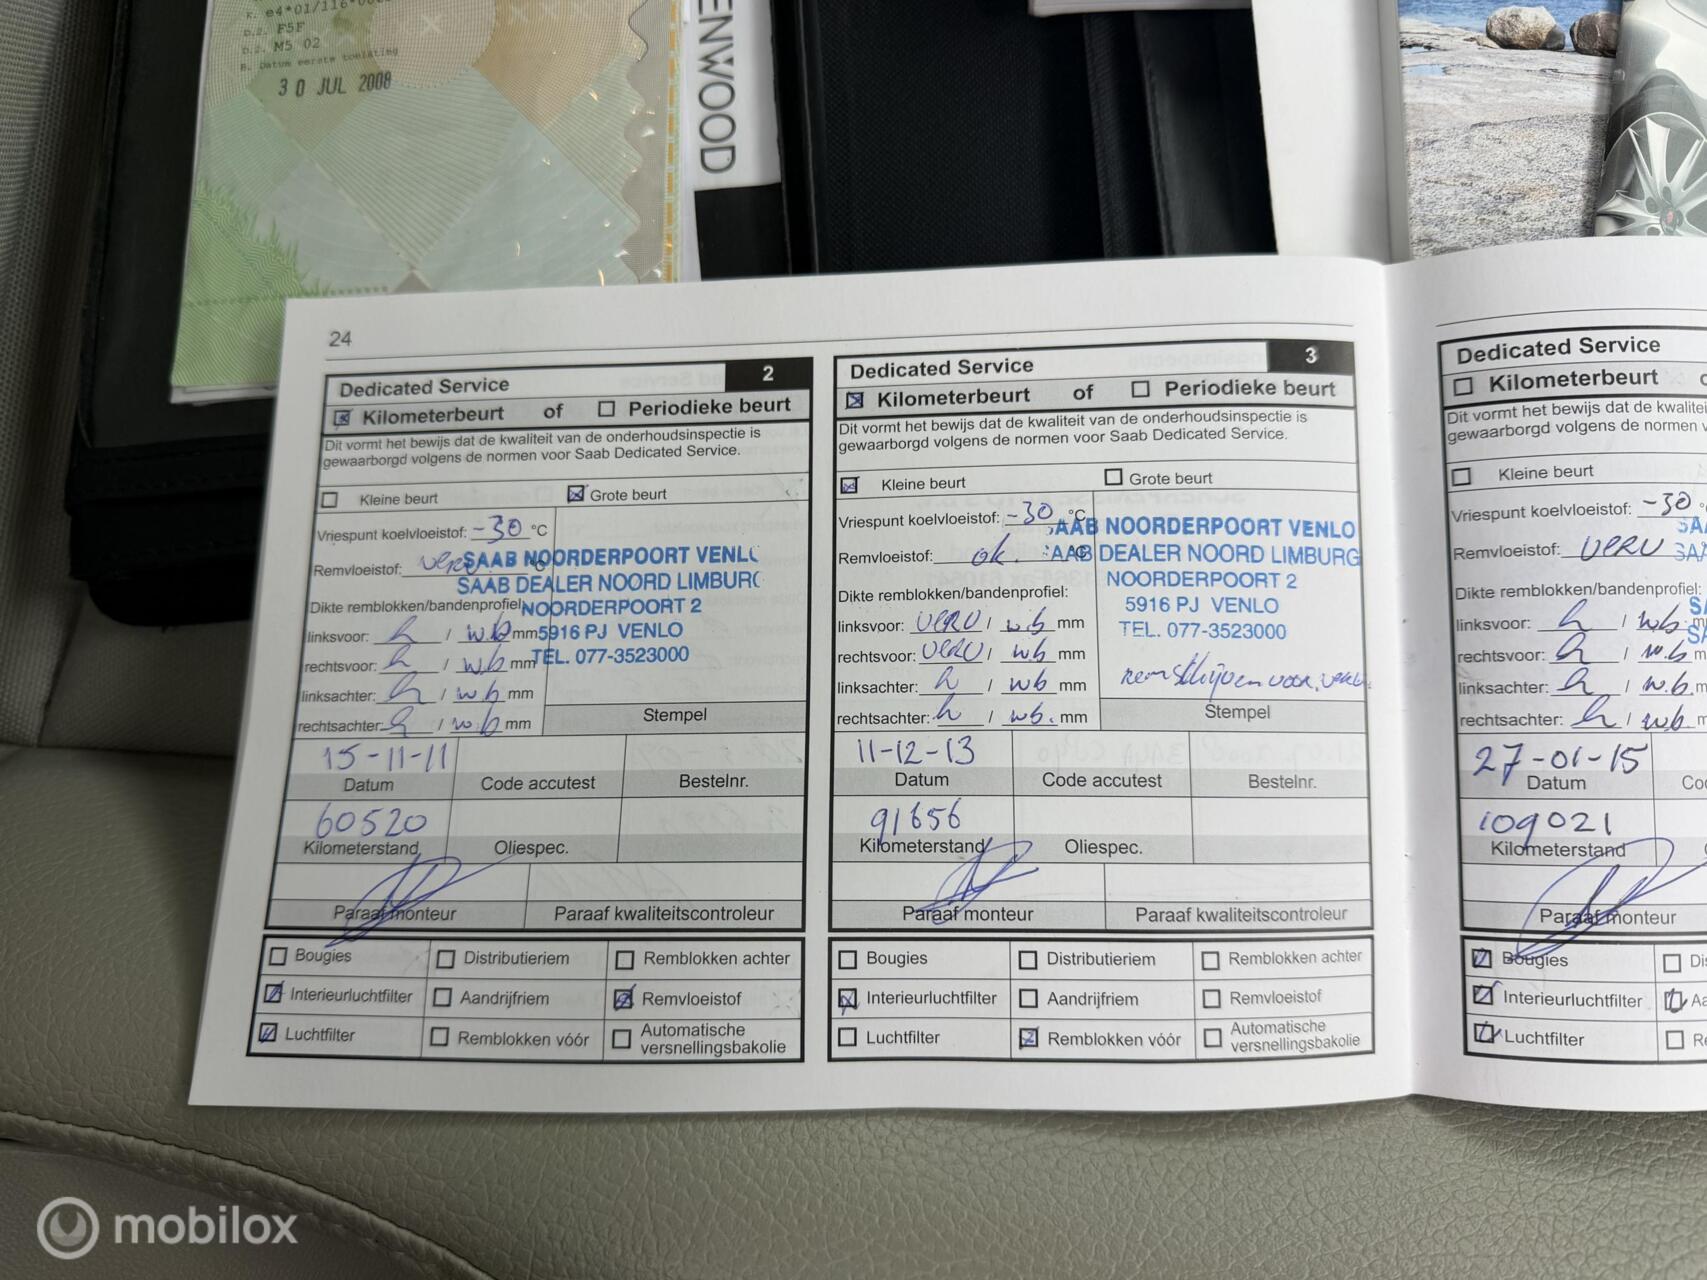 D.2. F5F
D.2. M5 02
B. Datum eerste toelating
30 JUL 2008
ENWOOD
24
Dedicated Service 2
Kilometerbeurt of Periodieke beurt
Dit vormt het bewijs dat de kwaliteit van de onderhoudsinspectie is
gewaarborgd volgens de normen voor Saab Dedicated Service.
Kleine beurt Grote beurt
Vriespunt koelvloeistof: -30 °C
Remvloeistof: verv.
SAAB NOORDERPOORT VENLO
SAAB DEALER NOORD LIMBURG
NOORDERPOORT 2
5916 PJ VENLO
TEL. 077-3523000
Dikte remblokken/bandenprofiel
linksvoor: / w.b mm
rechtsvoor: / wb mm
linksachter: / wb mm
rechtsachter: / w.b mm
Stempel
15-11-11
Datum Code accutest Bestelnr.
60520
Kilometerstand Oliespec.
Paraaf monteur Paraaf kwaliteitscontroleur
Bougies Distributieriem Remblokken achter
Interieurluchtfilter Aandrijfriem Remvloeistof
Luchtfilter Remblokken vóór Automatische
versnellingsbakolie
Dedicated Service 3
Kilometerbeurt of Periodieke beurt
Dit vormt het bewijs dat de kwaliteit van de onderhoudsinspectie is
gewaarborgd volgens de normen voor Saab Dedicated Service.
Kleine beurt Grote beurt
Vriespunt koelvloeistof: -30 °C
Remvloeistof: ok.
SAAB NOORDERPOORT VENLO
SAAB DEALER NOORD LIMBURG
NOORDERPOORT 2
5916 PJ VENLO
TEL. 077-3523000
Dikte remblokken/bandenprofiel:
linksvoor: verv / w.b mm
rechtsvoor: verv / wb mm
linksachter: / wb mm
rechtsachter: / wb. mm
remschijven voor verv.
Stempel
11-12-13
Datum Code accutest Bestelnr.
91656
Kilometerstand Oliespec.
Paraaf monteur Paraaf kwaliteitscontroleur
Bougies Distributieriem Remblokken achter
Interieurluchtfilter Aandrijfriem Remvloeistof
Luchtfilter Remblokken vóór Automatische
versnellingsbakolie
Dedicated Service
Kilometerbeurt
Dit vormt het bewijs dat de kwalite
gewaarborgd volgens de normen v
Kleine beurt
Vriespunt koelvloeistof: -30
Remvloeistof: verv
Dikte remblokken/bandenprofiel:
linksvoor: / wb m
rechtsvoor: / w.b m
linksachter: / w.b. m
rechtsachter: / wb. m
27-01-15
Datum
109021
Kilometerstand
Paraaf monteur
Bougies
Interieurluchtfilter
Luchtfilter
mobilox